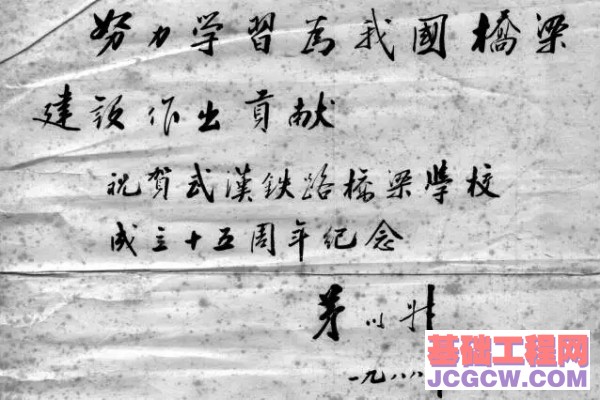 努力学習為我國橋梁
建設作出貢献
祝賀武漢鉄路橋梁学校
成立十五周年纪念
茅以升
一九八八年
基础工程网
JCGCW.COM